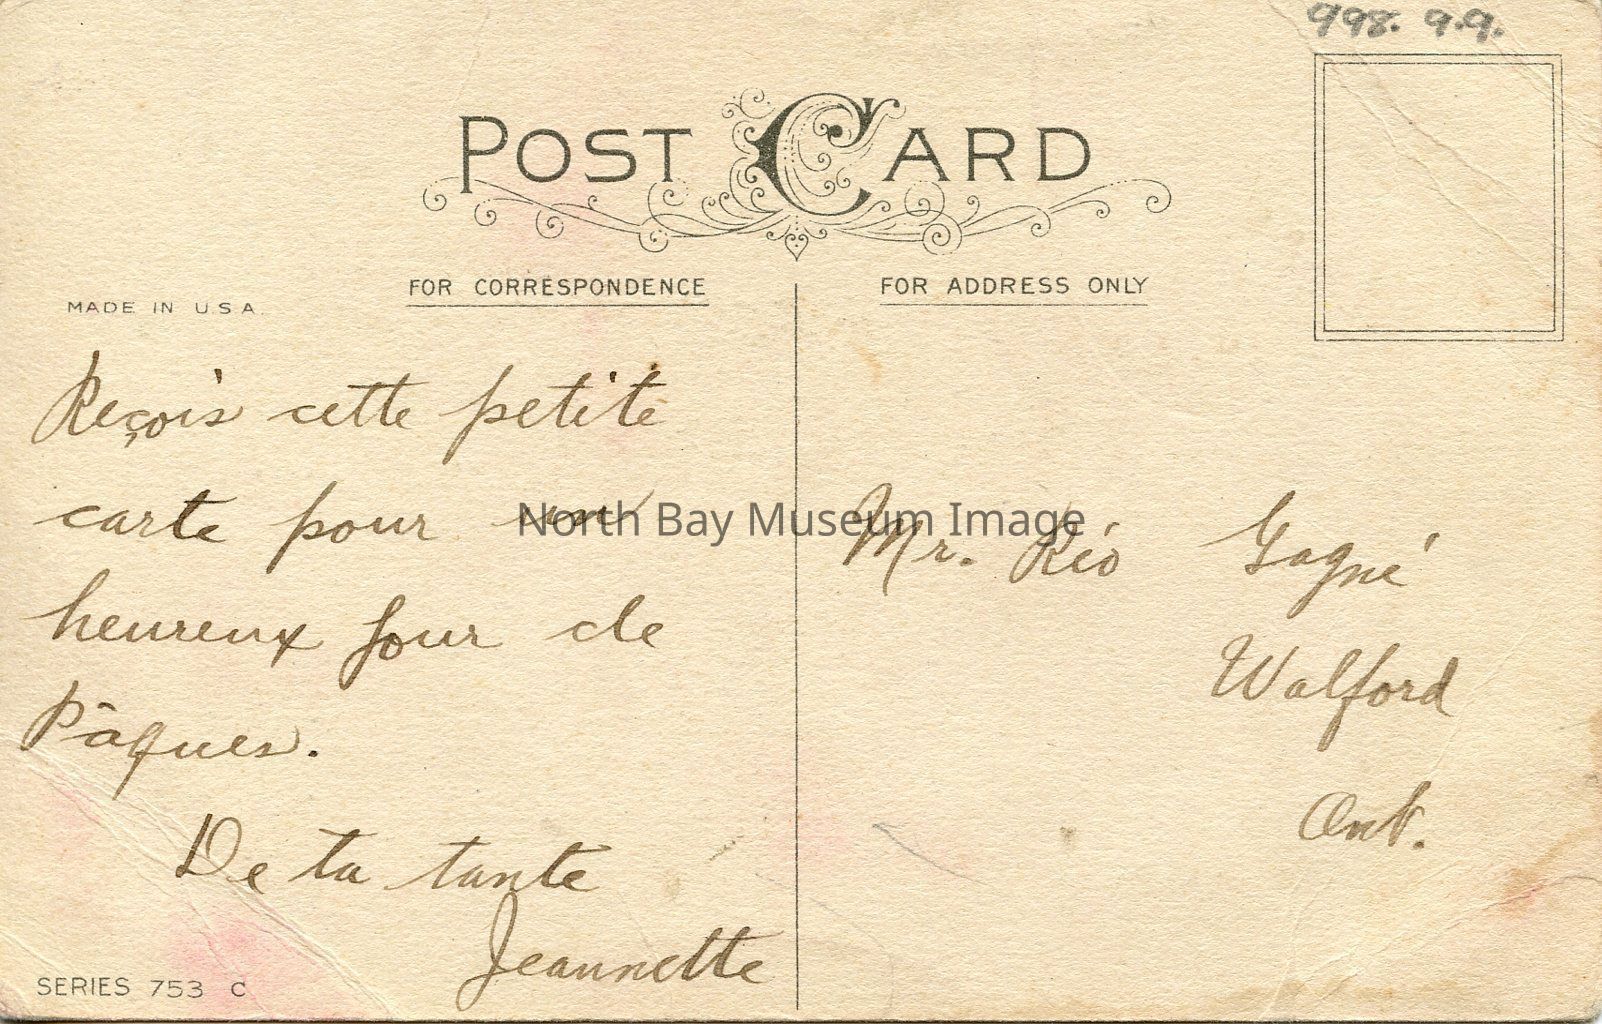 998. 9.9.
POST CARD
FOR CORRESPONDENCE
FOR ADDRESS ONLY
MADE IN U.S.A.
Reçois cette petite
carte pour un
heureux jour de
Pâques.
De ta tante
Jeannette
SERIES 753 C
North Bay Museum Image
Mr. Réo Gagné
Walford
Ont.